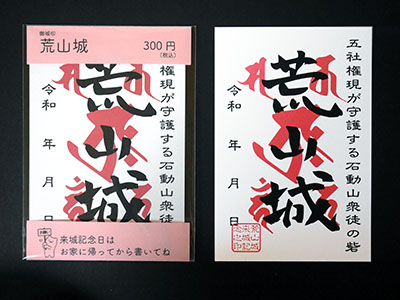 御城印
荒山城
300円
(税込)
権現が守護する石動山衆徒
荒山城
令和 年 月
来城記念日は
お家に帰ってから書いてね
五社権現が守護する石動山衆徒の砦
荒山城
令和 年 月 日
荒山城
来城記
念之印